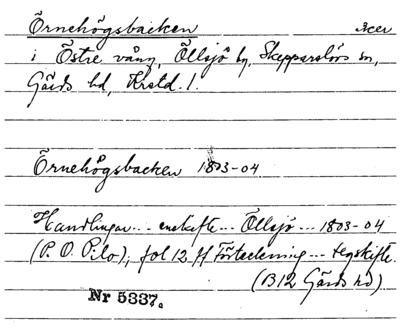 Örnehögsbacken åker
i Östre vång, Öllsjö by, Skepparslövs sn,
Gärds hd, Krstd. l.
Örnehögsbacken 1803-04
Handlingar... enskifte... Öllsjö... 1803-04
(P. O. Pilo), fol 12 ff Förteckning --- tegskifte.
(B12 Gärds hd)
Nr 5337.